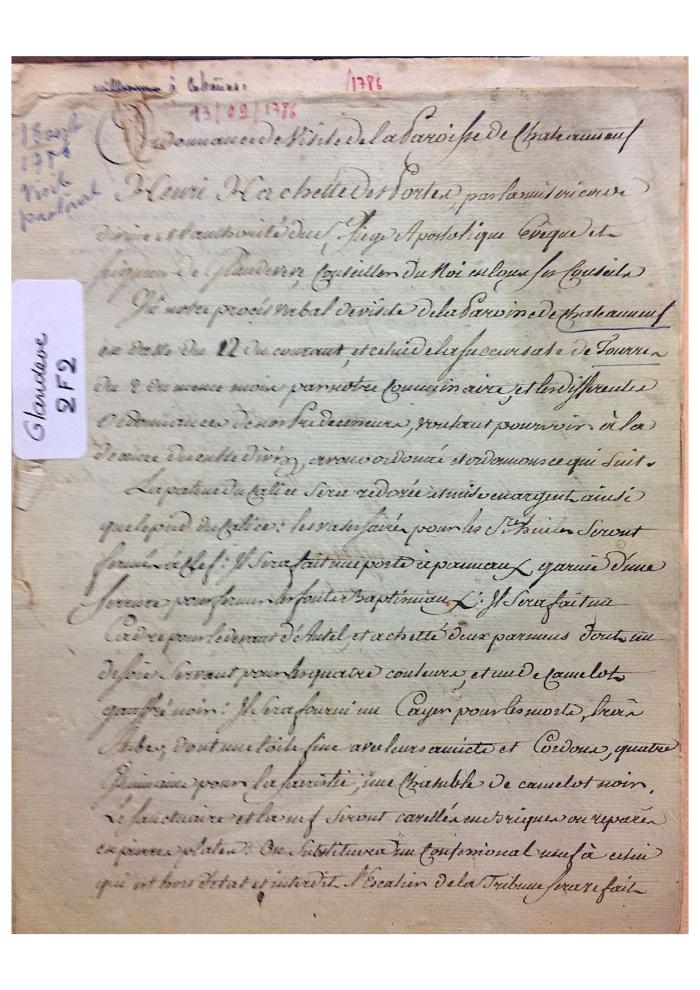 1786
13/09/1786
1786
Glandeve
2F2
Ordonnance de Visite de la Paroisse de Chateauneuf
Henri Hachette des Portes, par la misericorde
divine et l'authorité du St Siege Apostolique Evêque et
seigneur de Glandeve, Conseiller du Roi en tous ses Conseils
Vû notre procès verbal de visite de la Paroisse de Chateauneuf
en datte du 12 du courant, et celui de la succursale de Tourres
du 2 du meme mois par notre Commissaire, et les differentes
ordonnances de nos Predecesseurs, voulant pourvoir à la
decence du culte divin, avons ordonné et ordonnons ce qui suit.
La patene du Calice sera redorée et mise en argent ainsi
que le pied du Calice: les vases sacrés pour les Stes huiles seront
fermés à clef: Il sera fait une porte à panneaux, garnie d'une
serrure pour fermer les fonts Baptismaux: Il sera fait un
Cadre pour le devant d'Autel, et achetté deux paremens dont un
de soie servant pour les quatre couleurs, et un de camelot
gauffré noir: Il sera fourni un Cayer pour les morts, trois
Aubes, dont une toile fine avec leurs amicts et Cordons, quatre
pour la sacristie, une Chasuble de camelot noir.
Le sanctuaire et la nef seront carellés en Briques ou reparés
en pierres plates: On substituera un Confessional neuf à celui
qui est hors d'etat et interdit l'Escalier de la Tribune sera refait